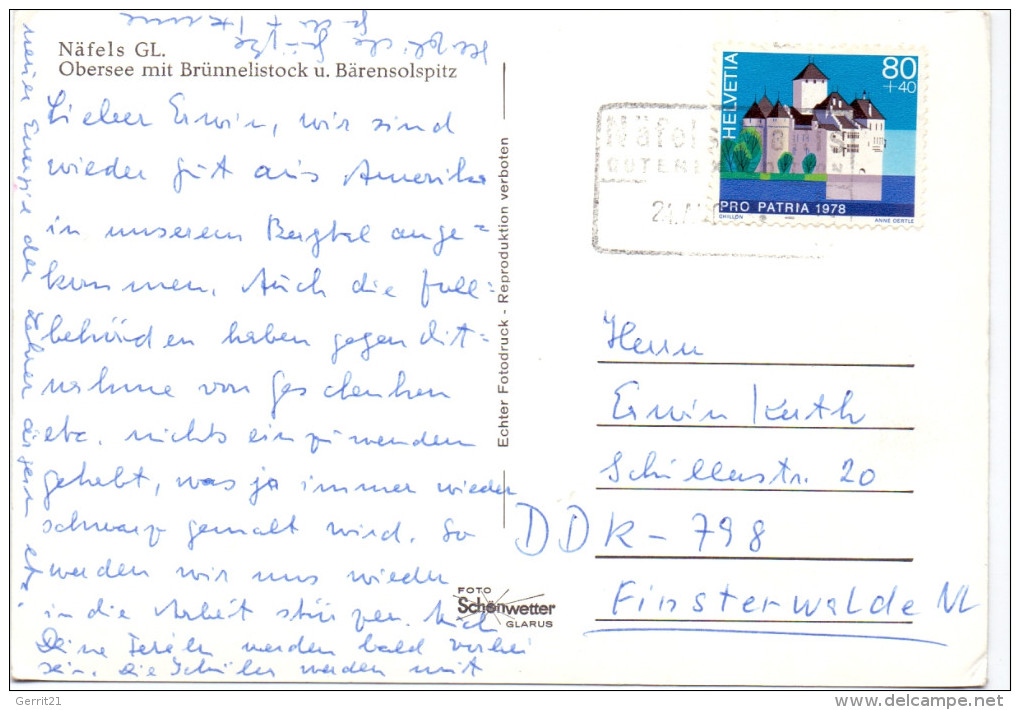 Näfels GL.
Obersee mit Brünnelistock u. Bärensolspitz
Lieber Erwin, wir sind
wieder gut aus Amerika
in unserem Bergtal ange=
kommen. Auch die Zoll=
behörden haben gegen Mit=
nahme von Geschenken
etc. nichts einzuwenden
gehabt, was ja immer wieder
schwarz gemalt wird. So
werden wir uns wieder
in die Arbeit stürzen. Auch
Deine Ferien werden bald vorbei
sein. Die Schüler werden mit
neuer Energie den Lehrer ärgern etc.
Herzliche Grüsse
Echter Fotodruck - Reproduktion verboten
FOTO
Schönwetter
GLARUS
HELVETIA
80
+40
PRO PATRIA 1978
CHILLON
ANNE OERTLE
Näfels
Herrn
Erwin Kuth
Schillerstr. 20
DDR-798
Finsterwalde NL
Gerrit21